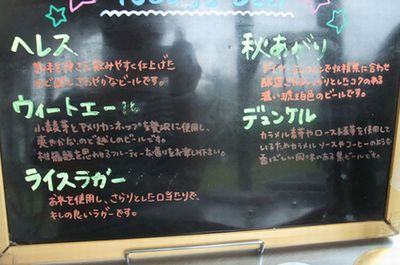 ヘレス
苦味を抑え飲みやすく仕上げた
のど越しさわやかなビールです。
ウィートエール
小麦麦芽とアメリカンホップを贅沢に使用し、
爽やかなのど越しのビールです。
柑橘類を思わせるフルーティーな香りをお楽しみ下さい。
ライスラガー
お米を使用し、さらりとした口当たりで、
キレの良いラガーです。
秋あがり
で収穫祭に合わせ
コクのある
濃い琥珀色のビールです。
デュンケル
カラメル麦芽やロースト麦芽を使用して
いるためカラメルソースやコーヒーのような
香ばしい風味のある黒ビールです。